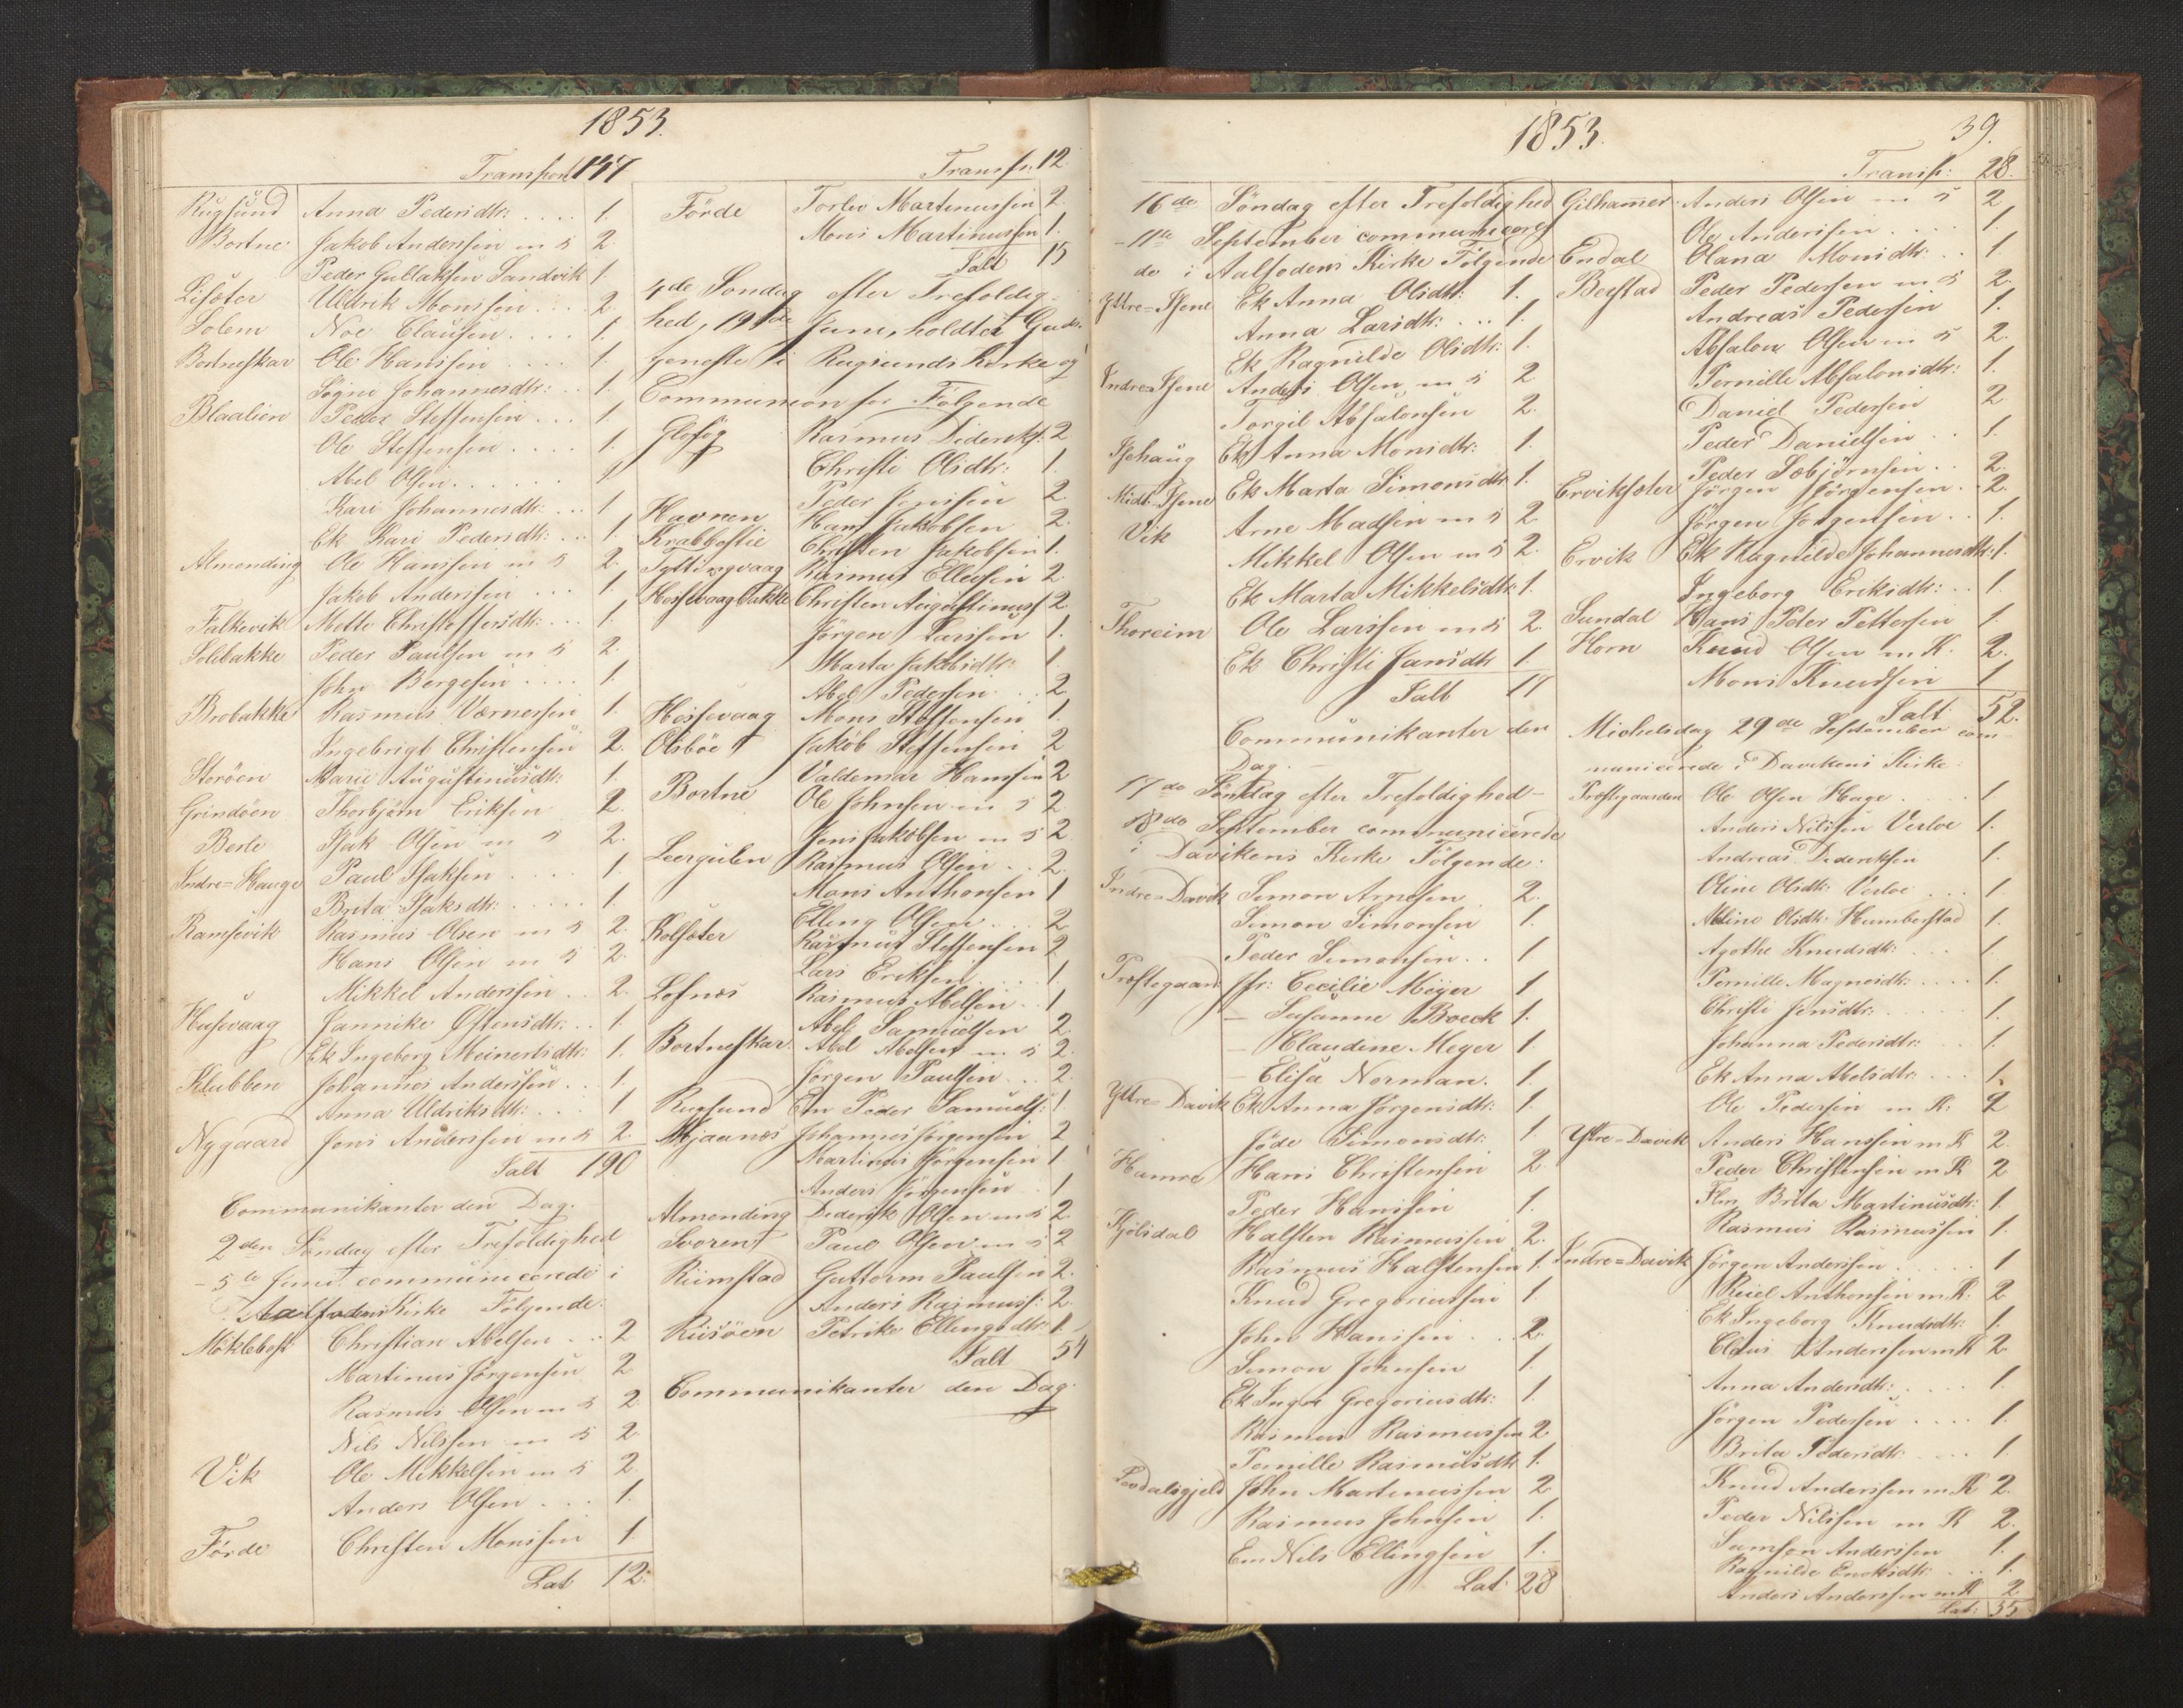 1853.
Transport 147
Rugsund Anna Pedersdtr: .... 1.
Bortne Jakob Anderssen m K 2
Peder Gullaksen Sandvik 1.
Lisæter Uldrik Monssen ... 2.
Solem Noe Claussen .... 1.
Bortneskar Ole Hanssen .... 1.
Søgni Johannesdtr: .. 1.
Blaalien Peder Steffensen ... 1.
Ole Steffensen .... 1.
Abel Olsen ...... 1
Kari Johannesdtr: ... 1
Ek Kari Pedersdtr: ... 1.
Almending Ole Hanssen m K 2.
Jakob Anderssen ... 1.
Falkevik Mette Christoffersdtr: ... 1.
Solibakke Peder Paulsen m K 2.
John Børgesen .... 1.
Brobakke Rasmus Værnersen 1.
Ingebrigt Christensen 2.
Storøen Marie Augustinusdtr: 1.
Grindøen Thorbjørn Eriksen 2.
Berle Isak Olsen m K 2.
Indre-Hauge Paul Isaksen .... 1.
Brita Isaksdtr: ..... 1.
Ramsevik Rasmus Olsen m K 2.
Hans Olsen m K 2.
Mikkel Anderssen .. 2.
Husevaag Jannike Østensdtr: .. 1.
Ek Ingeborg Meinertsdtr: 1.
Klubben Johannes Anderssen .. 1.
Anna Uldriksdtr: ... 1
Nygaard Jens Anderssen m K 2.
Ialt 190
Communikanter den Dag.
2den Søndag efter Trefoldighed
- 5te Juni communicerede i
Aalfodens Kirke Følgende:
Møklebost Christian Abelsen .. 2
Martinus Jørgensen 2
Rasmus Olsen m K 2.
Nils Nilssen m K 2
Vik Ole Mikkelsen m K 2.
Anders Olsen ... 1.
Førde Christen Monssen 1.
Lat 12.
Transp. 12.
Førde Torlev Martinussen 2.
Mons Martinussen 1.
Ialt 15
4de Søndag efter Trefoldig-
hed, 19de Juni, holdtes Guds-
tjeneste i Rugsunds Kirke og
Communion for Følgende
Rasmus Dideriks. 2
Christi Olsdtr: 1.
Peder Jenssen 2
Havnen Hans Jakobsen 2.
Krabbestie Christen Jakobsen 1.
Tyttingvaag Rasmus Ellevsen 2
Hessevaagbakke Christen Augustinuss 2
Jørgen Larssen 1.
Marta Jakobsdtr: 1.
Abel Pedersen .. 2
Hessevaag Mons Steffensen 1.
Olsbøe Jakob Steffensen 2
Valdemar Hanssen 2
Bortne Ole Johnsen m K 2
Jens Jakobsen m K 2
Leergulen Rasmus Olsen .. 2.
Mons Anthonsen 1
Elling Olsen ... 2
Kolsæter Rasmus Steffensen 2
Lars Eriksen ... 1
Lofnæs Rasmus Abelsen .. 1
Abel Samuelsen 2
Bortneskar Abel Abelsen m K 2.
Jørgen Paulsen ... 2.
Rugsund Em Peder Samuels: 1
Mjaanæs Johannes Jørgensen 2
Martinus Jørgensen 1
Anders Jørgensen .. 1
Almending Dederik Olsen m K 2
Svoren Paul Olsen m K 2
Rimstad Guttorm Paulsen 2.
Anders Rasmuss: 2.
Risøen Petrike Ellingsdtr 1.
Ialt 54
Communikanter den Dag.
1853.
39.
16de Søndag efter Trefoldighed
- 11te September communicere-
de i Aalfodens Kirke Følgende
Yttre-Isene Ek Anna Olsdtr: 1.
Anna Larsdtr: ... 1.
Ek Ragnilde Olsdtr: 1.
Indre-Isene Anders Olsen m K 2
Torgil Absalonsen 2.
Isehaug Ek Anna Monsdtr: 1.
Midt-Isene Ek Marta Simonsdtr 1.
Vik Arne Madsen m K 2
Mikkel Olsen m K 2.
Ek Marta Mikkelsdtr: 1.
Thoreim Ole Larssen m K 2.
Ek Christi Jansdtr 1.
Ialt 17
Communikanter den
Dag. -
17de Søndag efter Trefoldighed -
18de September communicerede
i Davikens Kirke Følgende:
Indre-Davik Simon Arnesen 2.
Simon Simonsen 1.
Peder Simonsen .. 1
Præstegaard: Jfr: Cecilie Meyer 1
- Susanne Boeck 1.
- Claudine Meyer 1
- Elisa Norman. 1.
Yttre-Davik Ek Anna Jørgensdtr: 1.
Jøde Simonsdtr: 1.
Hamre Hans Christensen 2
Peder Hanssen 1.
Kjølsdal Halsten Rasmussen 2.
Rasmus Halstensen 1.
Knud Gregoriussen 1.
John Hanssen .. 2.
Simon Johnsen 1.
Ek Inger Gregoriusdtr: 1.
Rasmus Rasmussen 2
Pernille Rasmusdtr 1.
John Martinussen 2
Rasmus Johnsen 1.
Em Nils Ellingsen 1.
Lat: 28
Transp: 28.
Gilhammer Anders Olsen m K 2
Ole Anderssen .... 1.
Endal Olana Monsdtr: .. 1
Berstad Peder Pedersen m K 2.
Andreas Pedersen 1.
Absalon Olsen m K 2.
Pernille Absalonsdtr: 1.
Daniel Pedersen 2
Peder Danielsen .. 1.
Peder Sæbjørnsen .. 2.
Erviksæter Jørgen Jørgensen .. 2.
Jørgen Jørgensen .. 1.
Ervik Ek Ragnilde Johannesdtr: 1.
Ingeborg Eriksdtr: .. 1.
Sundal Hans Peter Pettersen 1
Horn Knud Olsen m K. 2.
Mons Knudsen 1
Ialt 52.
Michelsdag 29de September com-
municerede i Davikens Kirke.
Præstegaarden Ole Olsen Hage .... 1
Anders Nilssen Verloe 1.
Andreas Dedereksen 1.
Oline Olsdtr: Verloe ... 1
Abeline Olsdtr: Humborstad 1.
Agothe Knudsdtr: ... 1
Pernille Magnesdtr: .... 1.
Christi Jensdtr: .... 1.
Johanna Pedersdtr: .. 1.
Ek Anna Abelsdtr: ... 1.
Ole Pedersen m K: 2
Yttre-Davik Anders Hanssen m K 2.
Peder Christensen m K 2
Flm Brita Martinusdtr: 1.
Rasmus Rasmussen 1.
Indre-Davik Jørgen Anderssen .... 1
Reiel Anthonsen m K: 2
Ek Ingeborg Knudsdtr: 1.
Claus Anderssen m K 2
Anna Andersdtr: .... 1.
Jørgen Pedersen .... 1.
Brita Pedersdtr: ... 1
Knud Anderssen m K 2.
Peder Nilssen m K 2.
Samson Anderssen 1.
Ragnilde Enoksdtr: .. 1.
Anders Anderssen m K 2
Lat: 35